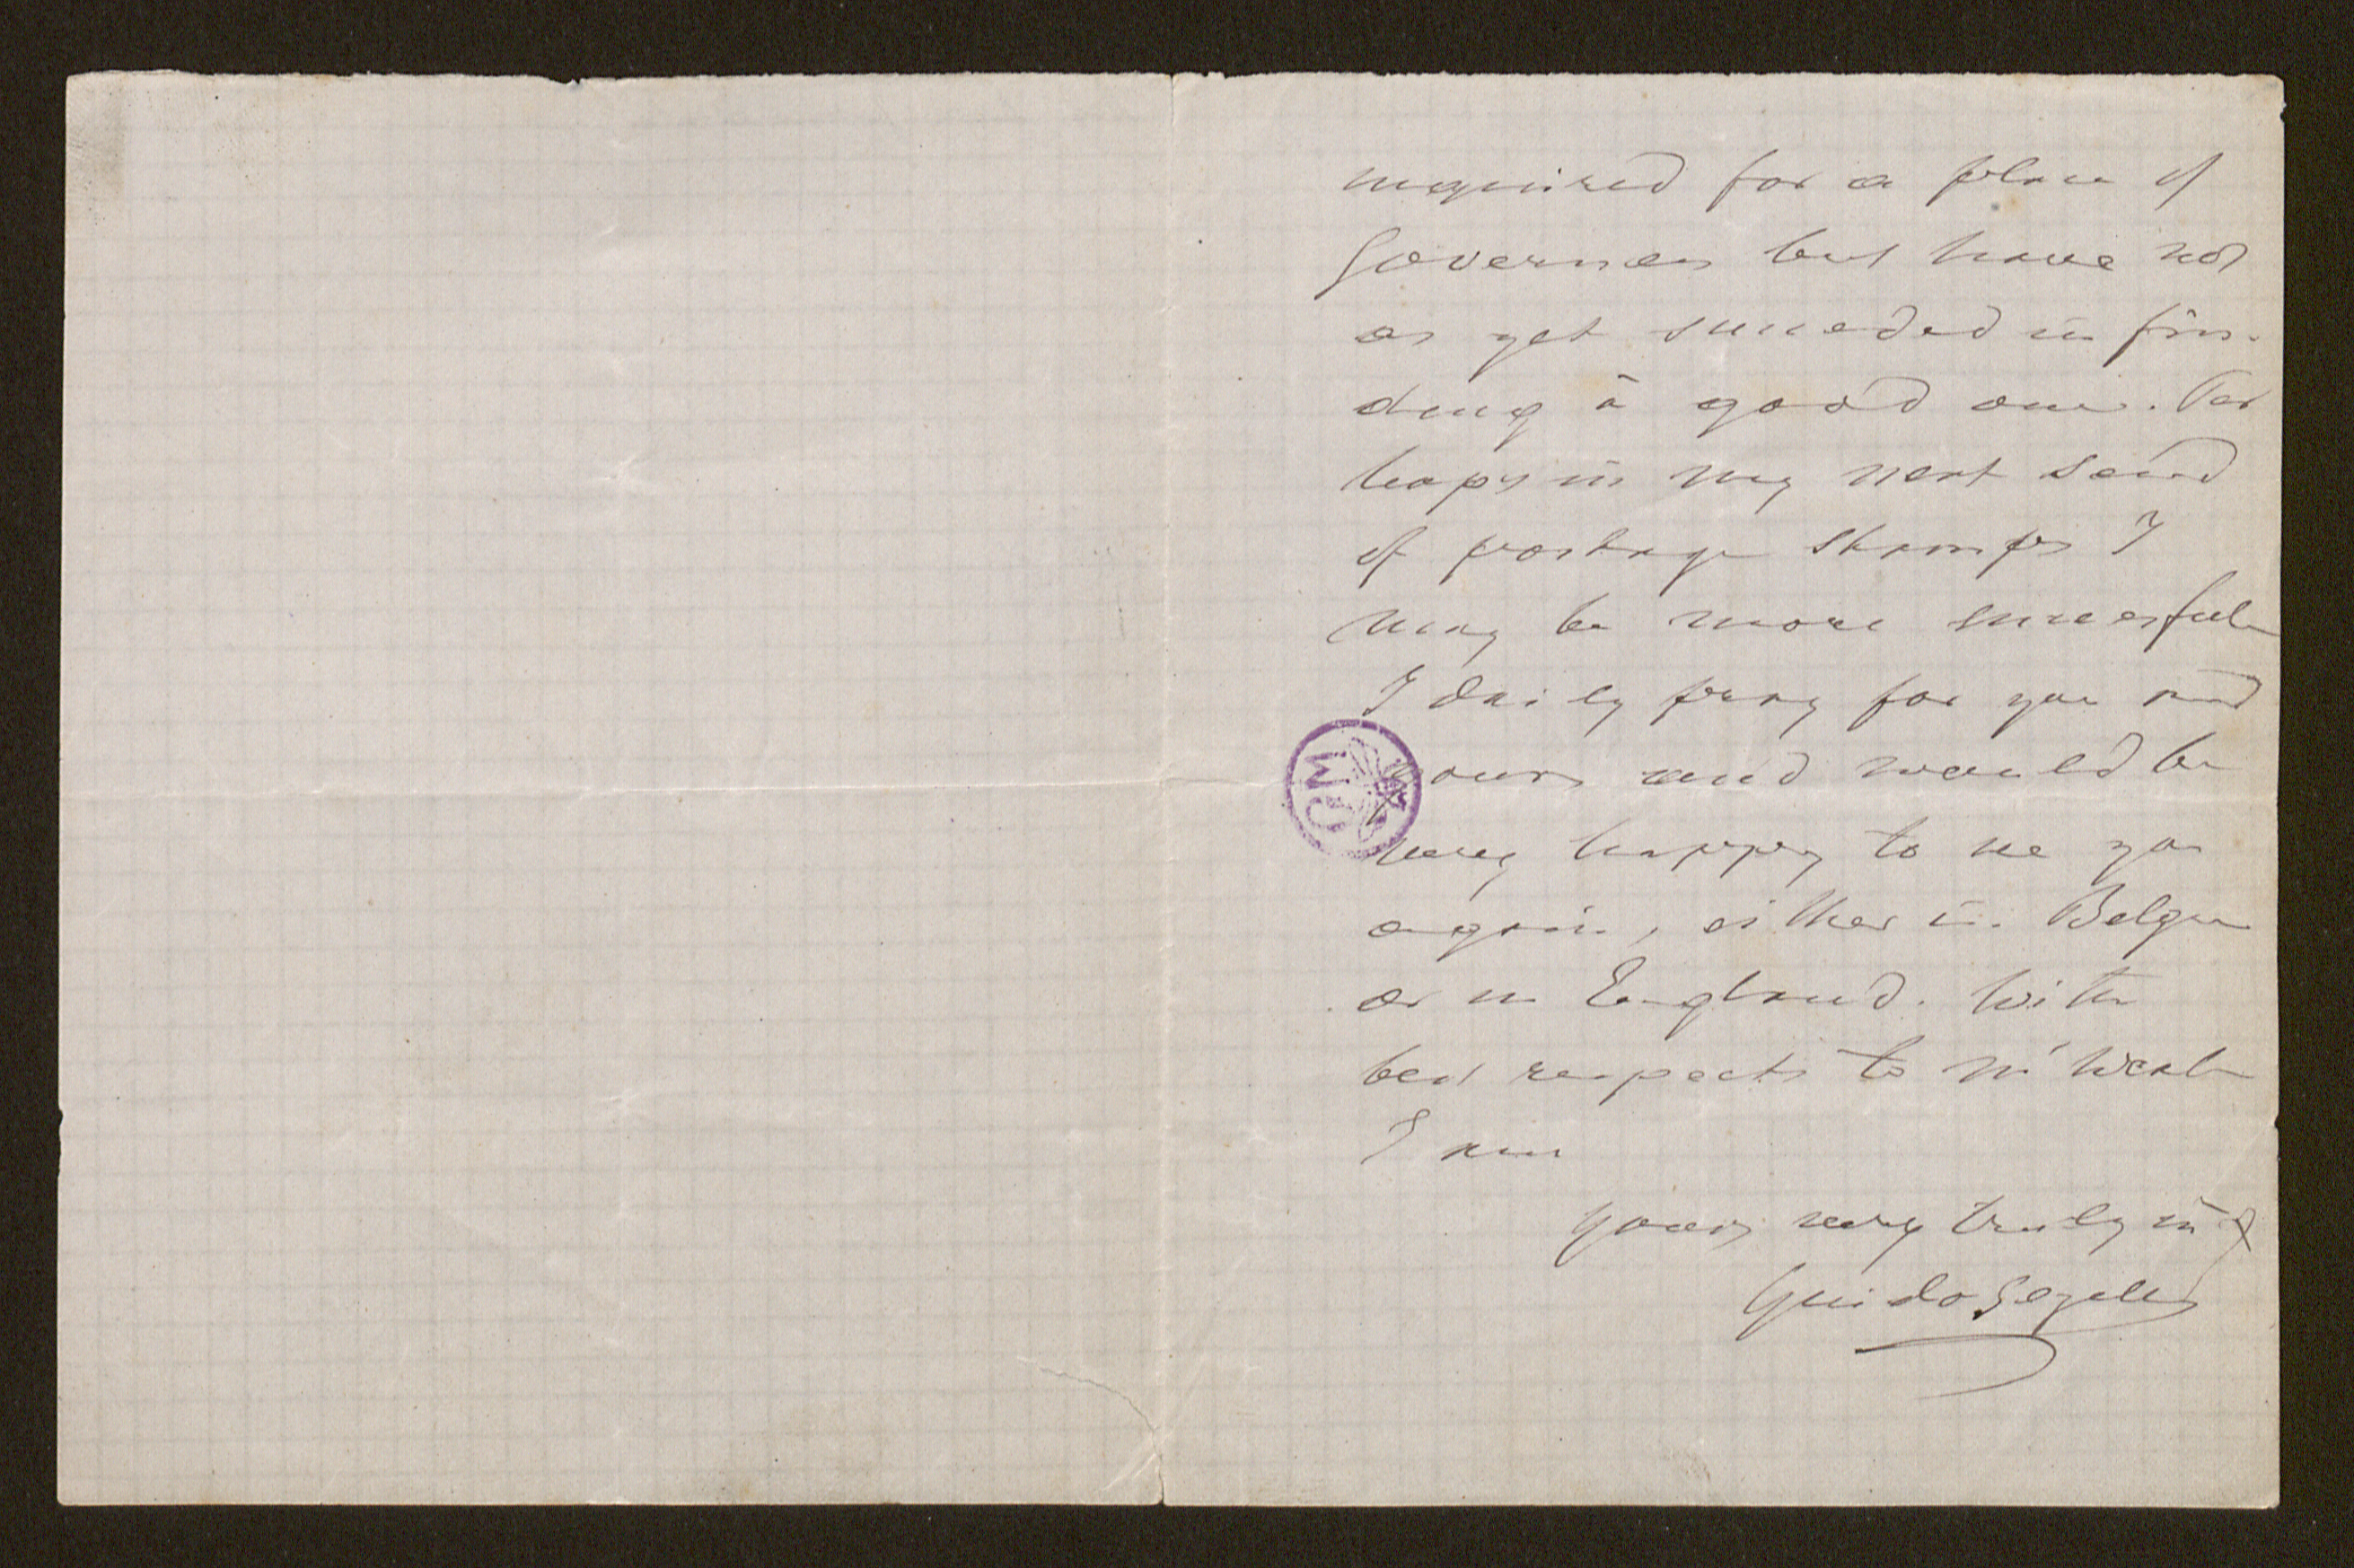 inquired for a place of
Governess but have not
as yet succeeded in fin-
ding a good one. Per
haps in my next send
of postage stamps I
may be more succesful
I daily pray for you and
yours and would be
very happy to see you
again, either in Belgium
or in England. With
best respects to Mr Weale
I am
yours very truly in X
Guido Gezelle
GM